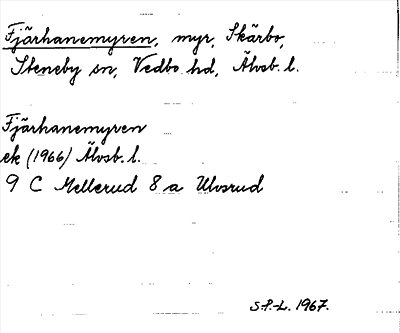 Fjärhanemyren, myr, Skärbo,
Steneby sn, Vedbo hd, Älvsb. l.
Fjärhanemyren
ek (1966) Älvsb. l.
9 C Mellerud 8 a Ulvsrud
S.P.-L. 1967.